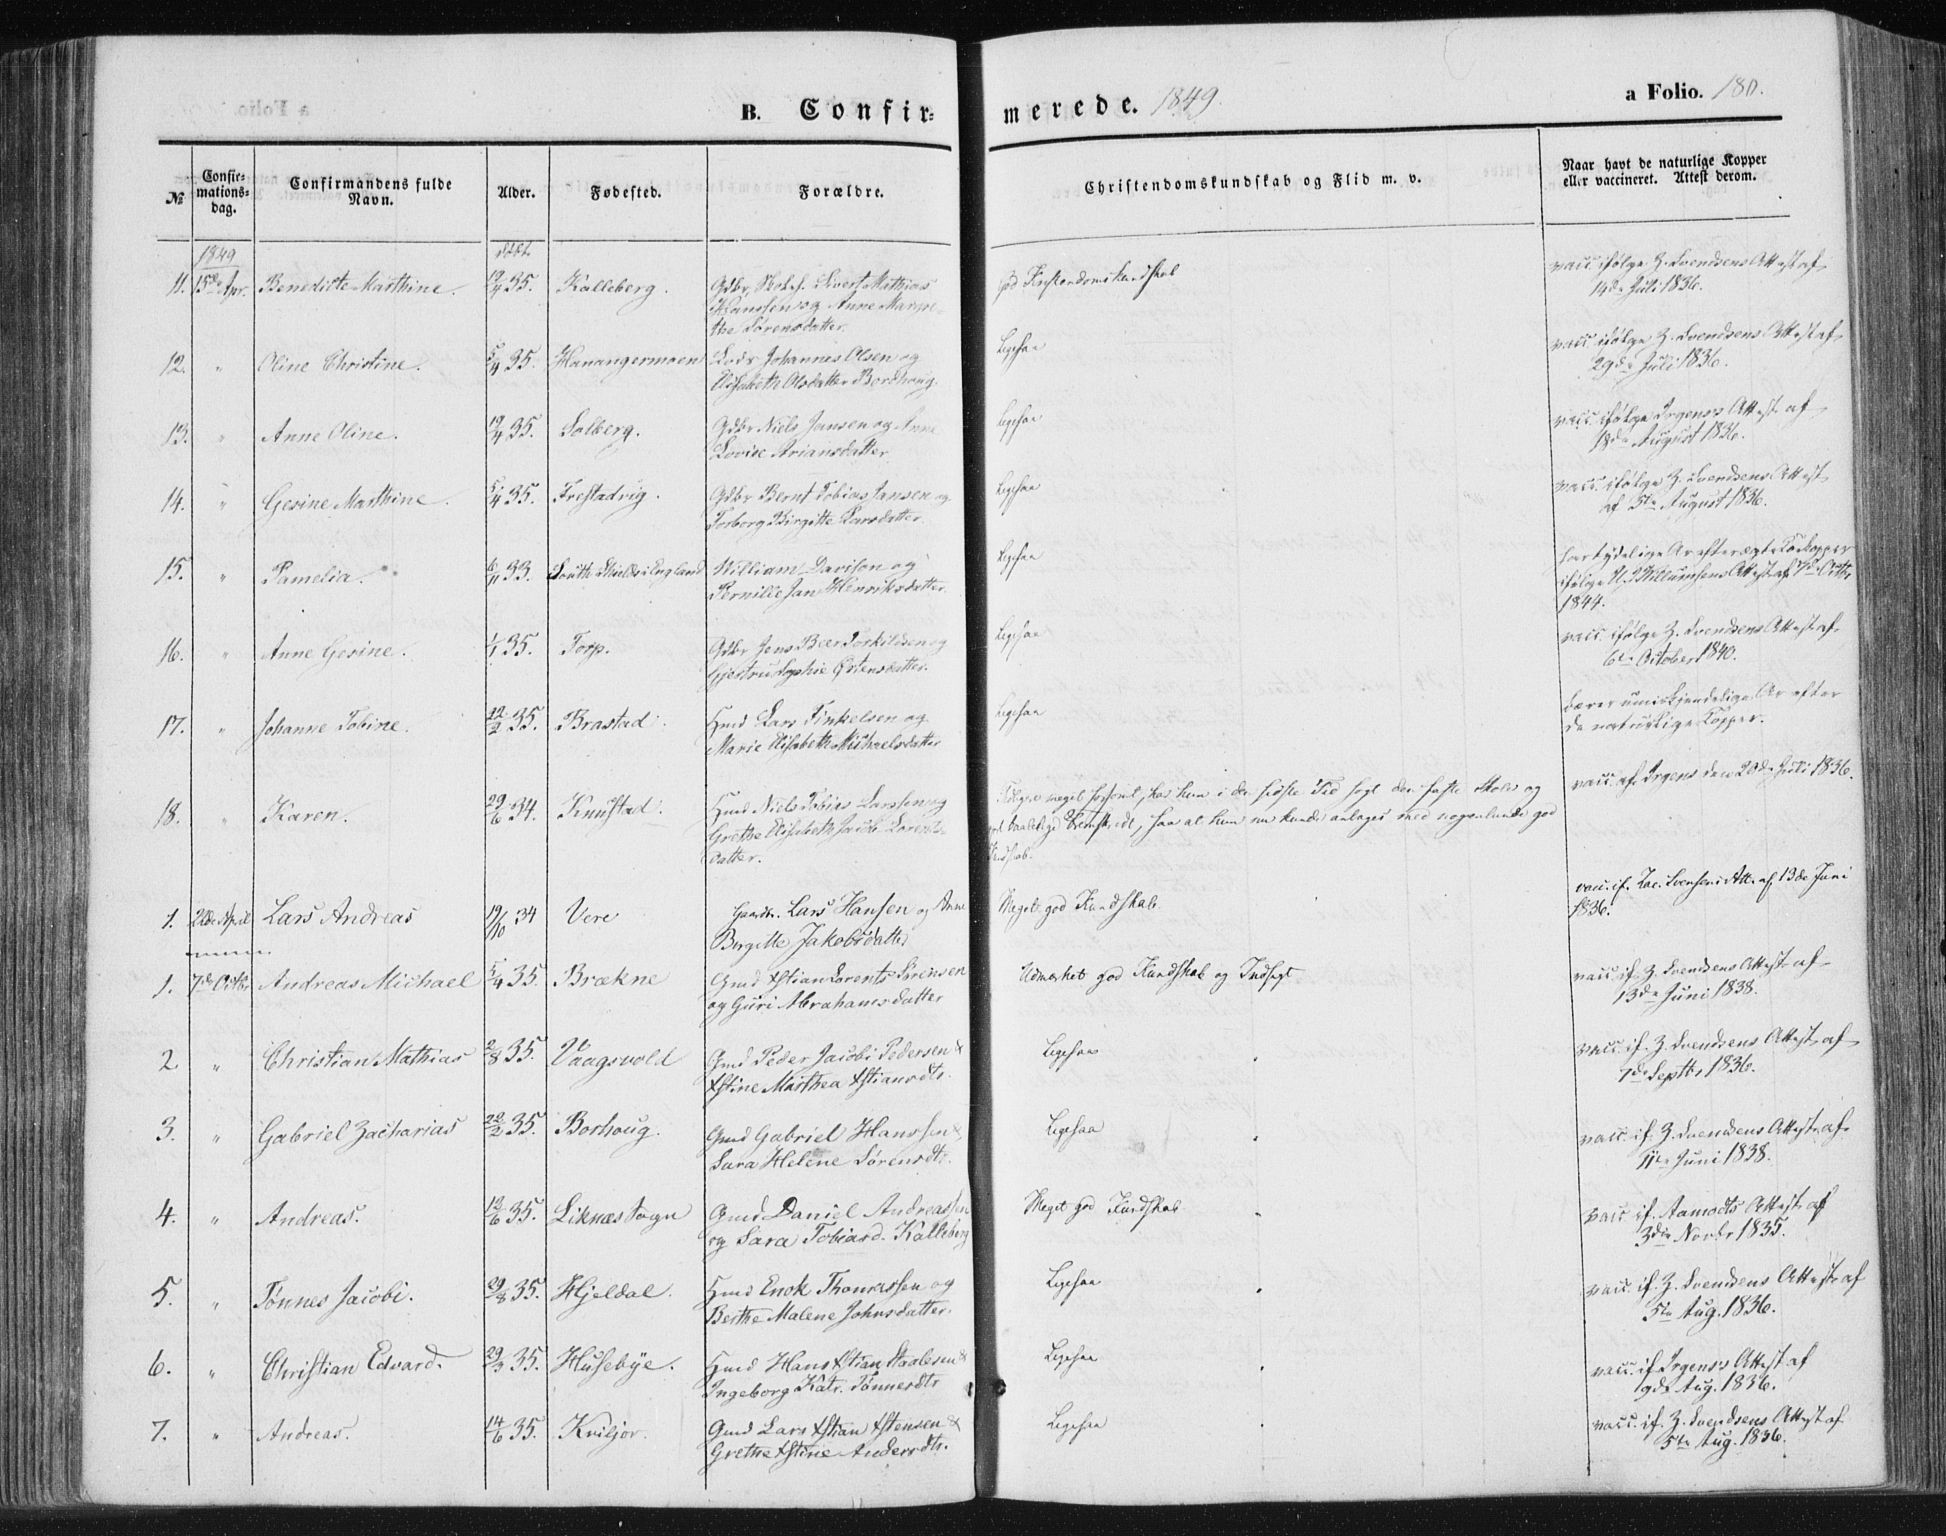 B. Confir=
merede. 1849.
a Folio. 180.
№
Confir=
mations=
dag.
Confirmandens fulde
Navn.
Alder.
Fødested.
Forældre.
Christendomskundskab og Flid m. v.
Naar havt de naturlige Kopper
eller vaccineret. Attest derom.
1849
døbt
11. 15de Apr. Benedicte Marthine. 19/4 35. Kalleberg. Gdbr. Sivert Mathias
Hanssen og Anne Margre-
the Sørensdatter.
god Kristendomskundskab
vacc. ifølge Z. Svendsens Attest af
14de Juli 1836.
12. " Oline Christine. 5/4 35. Hanangermoen Lods Johannes Olsen og
Elisabeth Olsdatter Bordhoug.
Ligesaa
vacc. ifølge Z. Svendsens Attest af
29de Juli 1836.
13. " Anne Oline. 19/4 35. Solberg. Gdbr Niels Jansen og Anne
Lovise Ariansdatter
Ligesaa
vacc. ifølge Irgens's Attest af
18de August 1836.
14. " Gesine Marthine. 5/4 35. Frestadvig. Gdbr Bernt Tobias Jansen og
Torborg Birgitte Larsdatter.
Ligesaa
vacc. ifølge Z. Svendsens Attest
af 5te August 1836.
15. " Pamelia. 6/11 33. South Shields i England William Davison og
Pernille Jan Henriksdatter.
Ligesaa
har tydelige Ar efter ægte Kokopper
ifølge Willumsens Attest af 7de Octbr
1844.
16. " Anne Gesine. 1/1 35. Torp. Gdbr Jens Beer Torkildsen og
Gjertrud Sophie Østensdatter.
Ligesaa
vacc. ifølge Z. Svendsens Attest af
6te October 1840.
17. " Johanne Tobine. 22/2 35. Brastad. Hmd Lars Tinkelsen og
Marie Elisabeth Michaelsdatter
Ligesaa
bærer umiskjendelige Ar efter
de naturlige Kopper.
18. " Karen. 29/6 34. Knustad. Hmd Niels Tobias Larssen og
Grethe Elisabeth Jacob Lorents-
datter.
Tidligere meget forsømt, har hun i den sidste Tid søgt den faste Skole og
gjort saaledes Fremskridt, saa at hun nu kunde antages med nogenlunde god
Kundskab.
vacc. af Irgens den 20de Juli 1836.
1. 22de April Lars Andreas 19/10 34 Vere Gaardbr. Lars Hansen og Anne
Bergitte Jakobsdatter
Meget god Kundskab
vacc. if. Zac. Svensens Att. af 13de Juni
1836.
1. 7de Octbr Andreas Michael 5/4 35. Brækne Gmd Xstian Lorents Sørensen
og Guri Abrahamsdatter
Udmærket god Kundskab og Indsigt
vacc. if. Z. Svendsens Attest af
13de Juni 1838.
2 " Christian Mathias 2/8 35. Vaagsvold Gmd Peder Jacobi Pedersen &
Xstine Marthea Xstiansdtr.
Ligesaa
vacc. if. Z. Svendsens Attest af
7de Septbr 1836.
3. " Gabriel Zacharias 22/2 35. Borhoug. Gmd Gabriel Hanssen &
Sara Helene Sørensdtr.
Ligesaa
vacc. if. Z. Svendsens Attest af
11te Juni 1838.
4. " Andreas. 13/6 35. Liknæs Sogn Gmd Daniel Andreassen
og Sara Tobiasd. Kalleberg
Meget god Kundskab
vacc. if. Aamodts Attest af
3die Novbr 1835.
5. " Tønnes Jacobi. 29/8 35. Hjeldal. Hmd Enok Thomassen og
Berthe Malene Johnsdatter.
Ligesaa
vacc. if. Z. Svendsens Attest af
5te Aug. 1836.
6. " Christian Edvard. 29/3 35. Husebye. Hmd Hans Xstian Staalesen &
Ingeborg Katr. Tønnesdtr
Ligesaa
vacc. if. Irgens's Attest af
9de Aug. 1836.
7. " Andreas. 14/6 35. Kviljor. Gmd Lars Xstian Xstensen &
Grethe Xstine Andersdtr.
Ligesaa
vacc. if. Z. Svendsens Attest af
5te Aug. 1836.